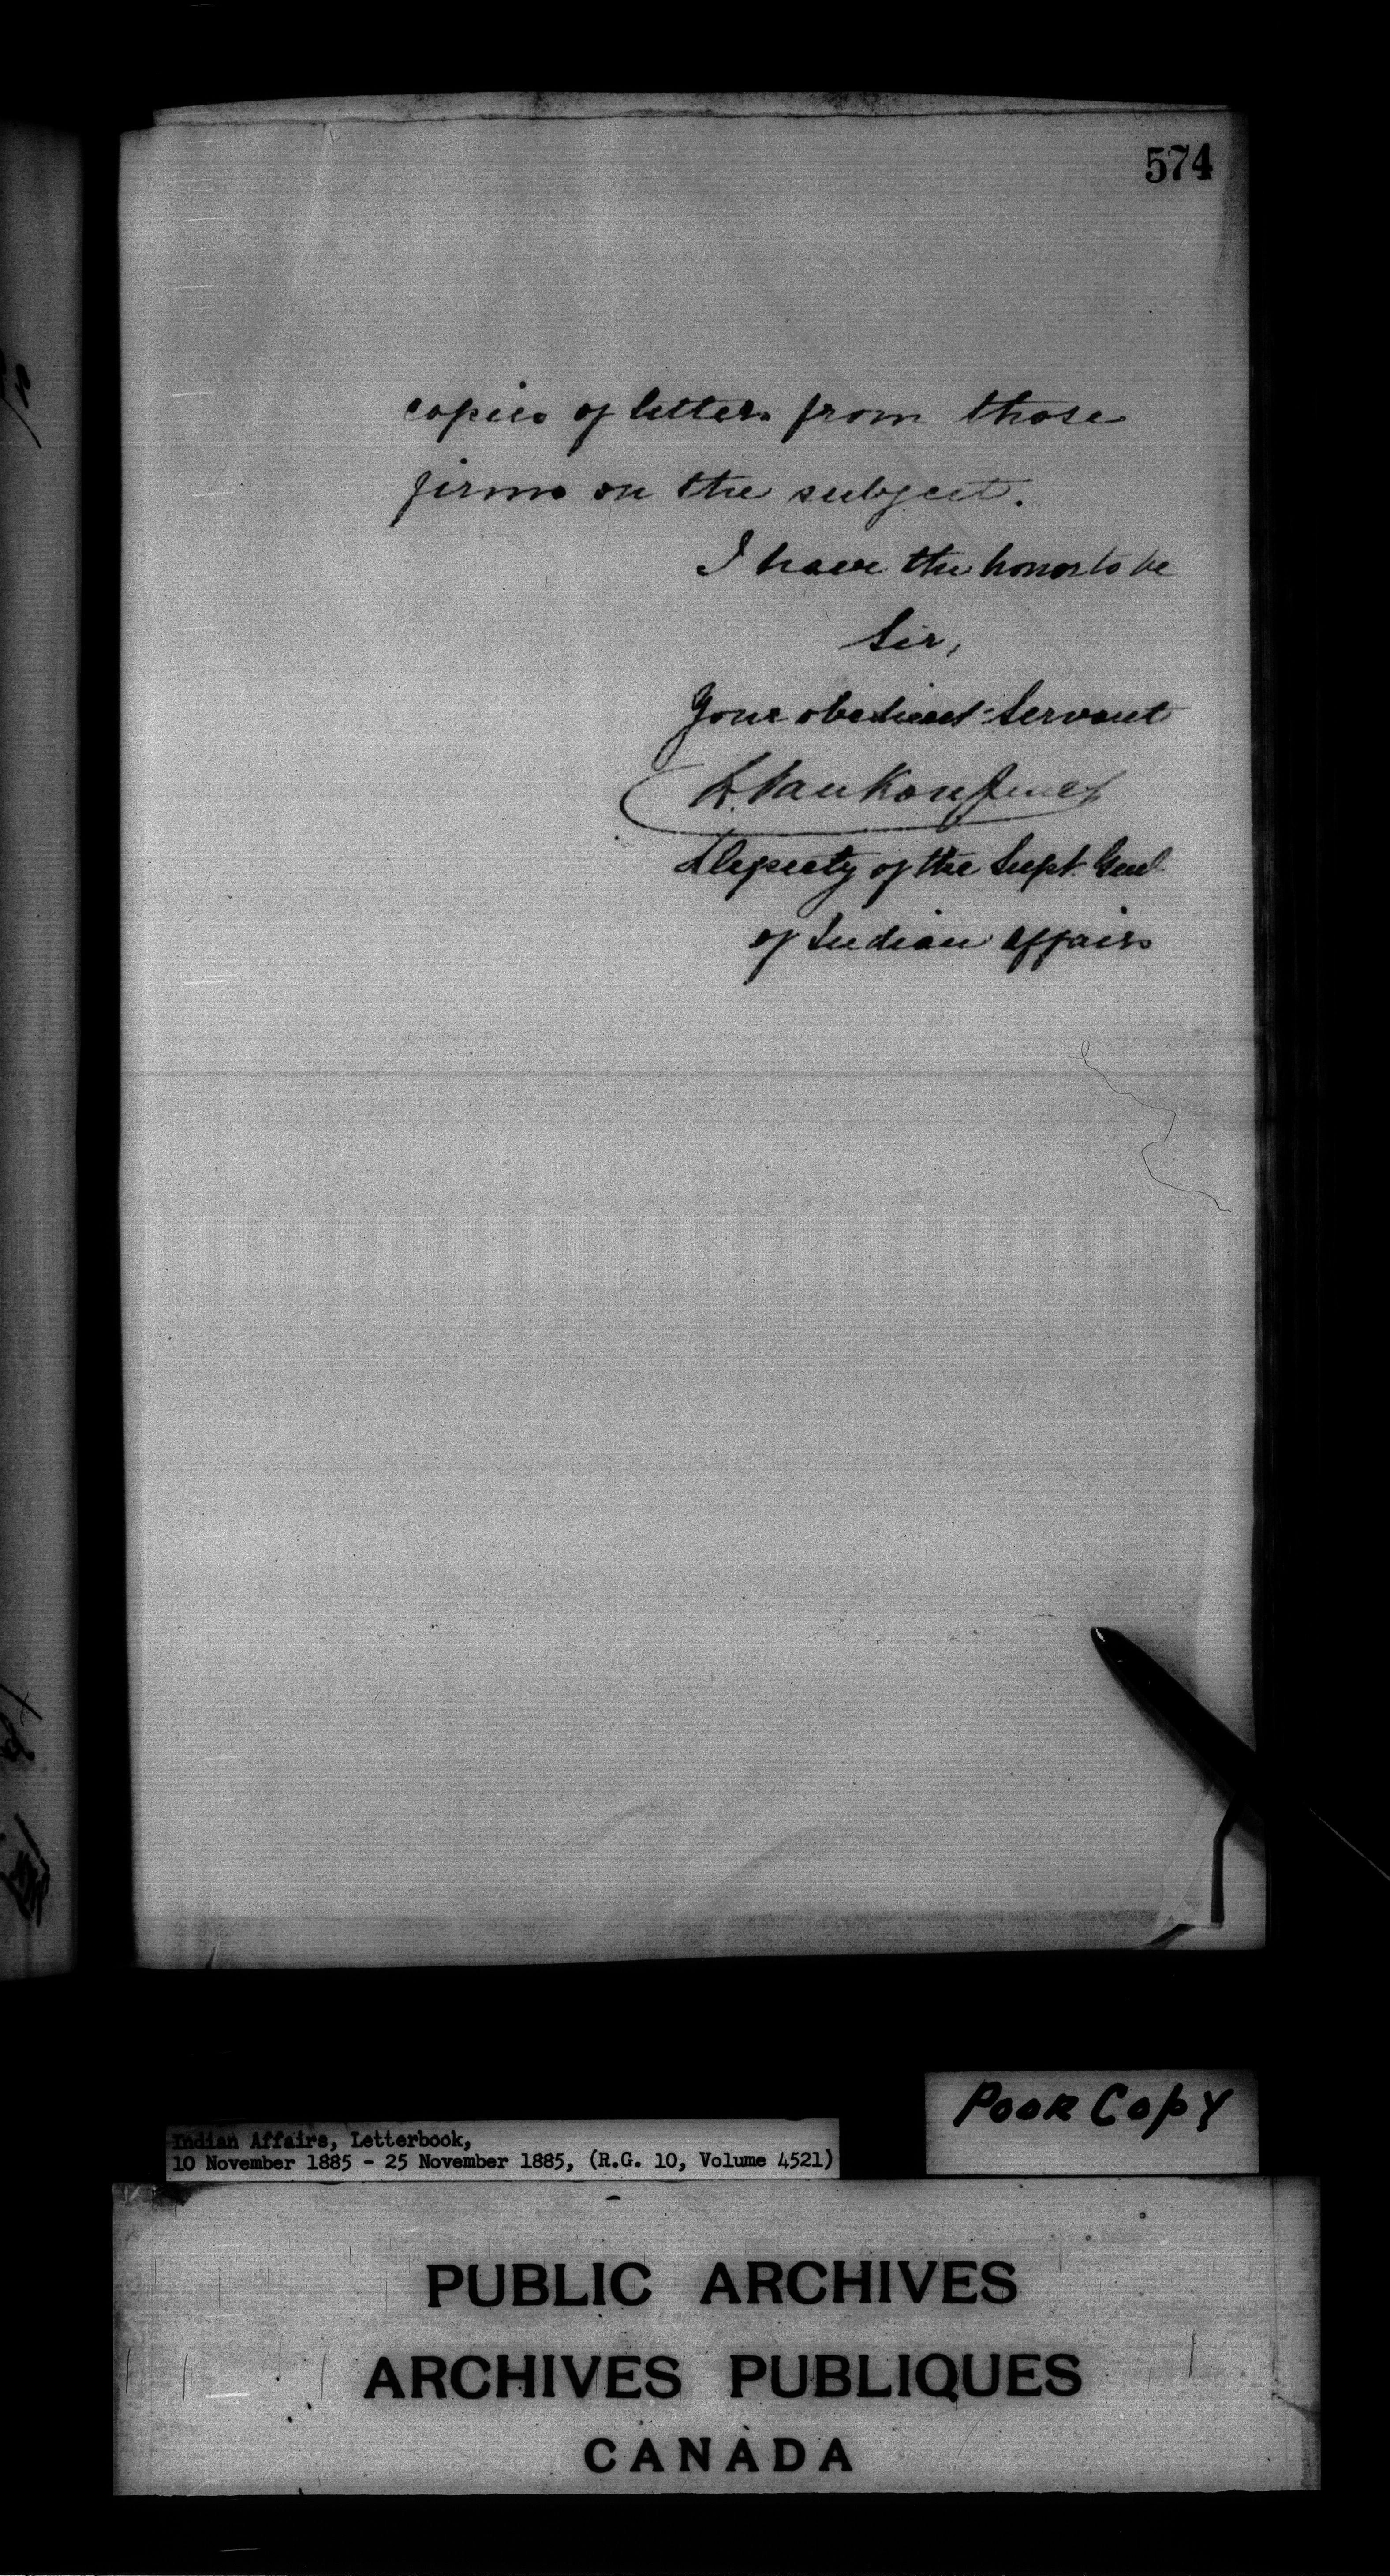 574
copies of letters from those
firms on the subject.
I have the honor to be
Sir,
Your obedient Servant
L. VanKoughnet
Deputy of the Supt. Genl
of Indian Affairs
Poor Copy
Indian Affairs, Letterbook,
10 November 1885 - 25 November 1885, (R.G. 10, Volume 4521)
PUBLIC ARCHIVES
ARCHIVES PUBLIQUES
CANADA